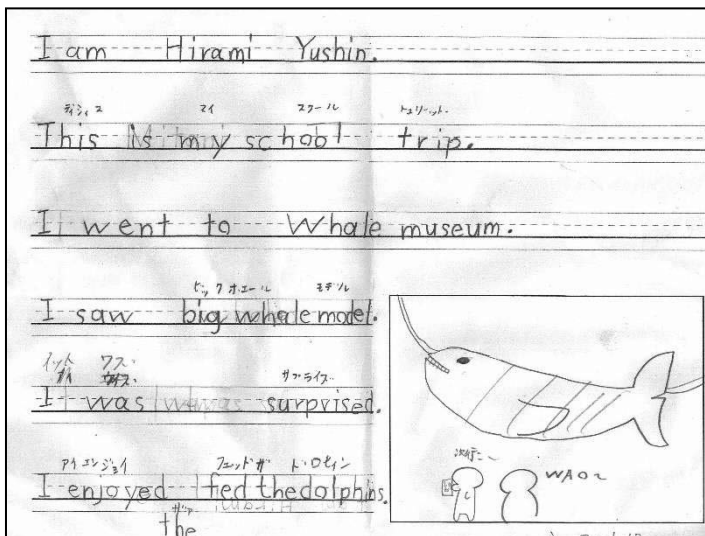 I am Hirami Yushin.
ディシィス マイ スクール トュリーット.
This is my school trip.
I went to Whale museum.
ビックオエール モデル
I saw big whale model.
イット ワズ
アイ サプライズ
I was surprised.
アイ エンジョイ フェッドザ ドロヒィン
I enjoyed fed the dolphins.
ザァ
the
次行こ〜
WAO~